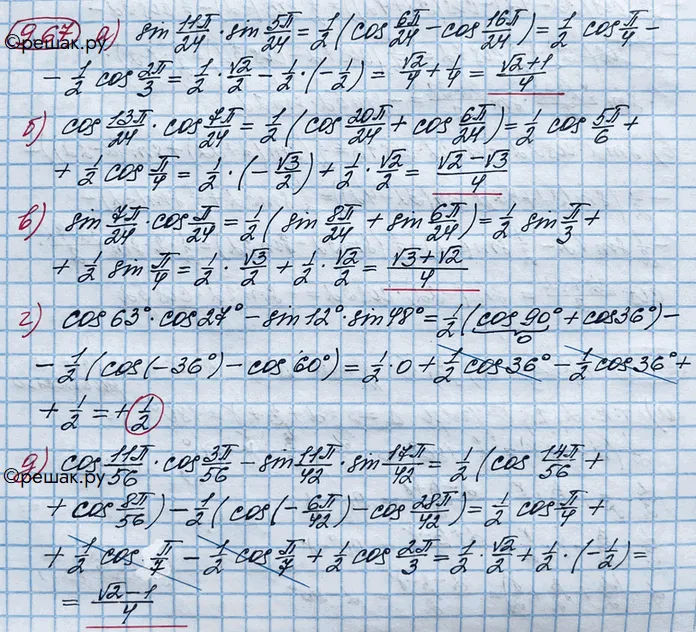 967 а) sin 11π/24 · sin 5π/24 = 1/2 (cos 6π/24 - cos 16π/24) = 1/2 cos π/4 -
©решак.ру
- 1/2 cos 2π/3 = 1/2 · √2/2 - 1/2 · (-1/2) = √2/4 + 1/4 = (√2+1)/4
б) cos 13π/24 · cos 7π/24 = 1/2 (cos 20π/24 + cos 6π/24) = 1/2 cos 5π/6 +
+ 1/2 cos π/4 = 1/2 · (-√3/2) + 1/2 · √2/2 = (√2-√3)/4
в) sin 7π/24 · cos π/24 = 1/2 (sin 8π/24 + sin 6π/24) = 1/2 sin π/3 +
+ 1/2 sin π/4 = 1/2 · √3/2 + 1/2 · √2/2 = (√3+√2)/4
г) cos 63° · cos 27° - sin 12° · sin 48° = 1/2 (cos 90° + cos 36°) -
0
- 1/2 (cos(-36°) - cos 60°) = 1/2 · 0 + 1/2 cos 36° - 1/2 cos 36° +
+ 1/2 = + 1/2
д) cos 11π/56 · cos 3π/56 - sin 11π/42 · sin 17π/42 = 1/2 (cos 14π/56 +
©решак.ру
+ cos 8π/56) - 1/2 (cos(-6π/42) - cos 28π/42) = 1/2 cos π/4 +
+ 1/2 cos π/7 - 1/2 cos π/7 + 1/2 cos 2π/3 = 1/2 · √2/2 + 1/2 · (-1/2) =
= (√2-1)/4